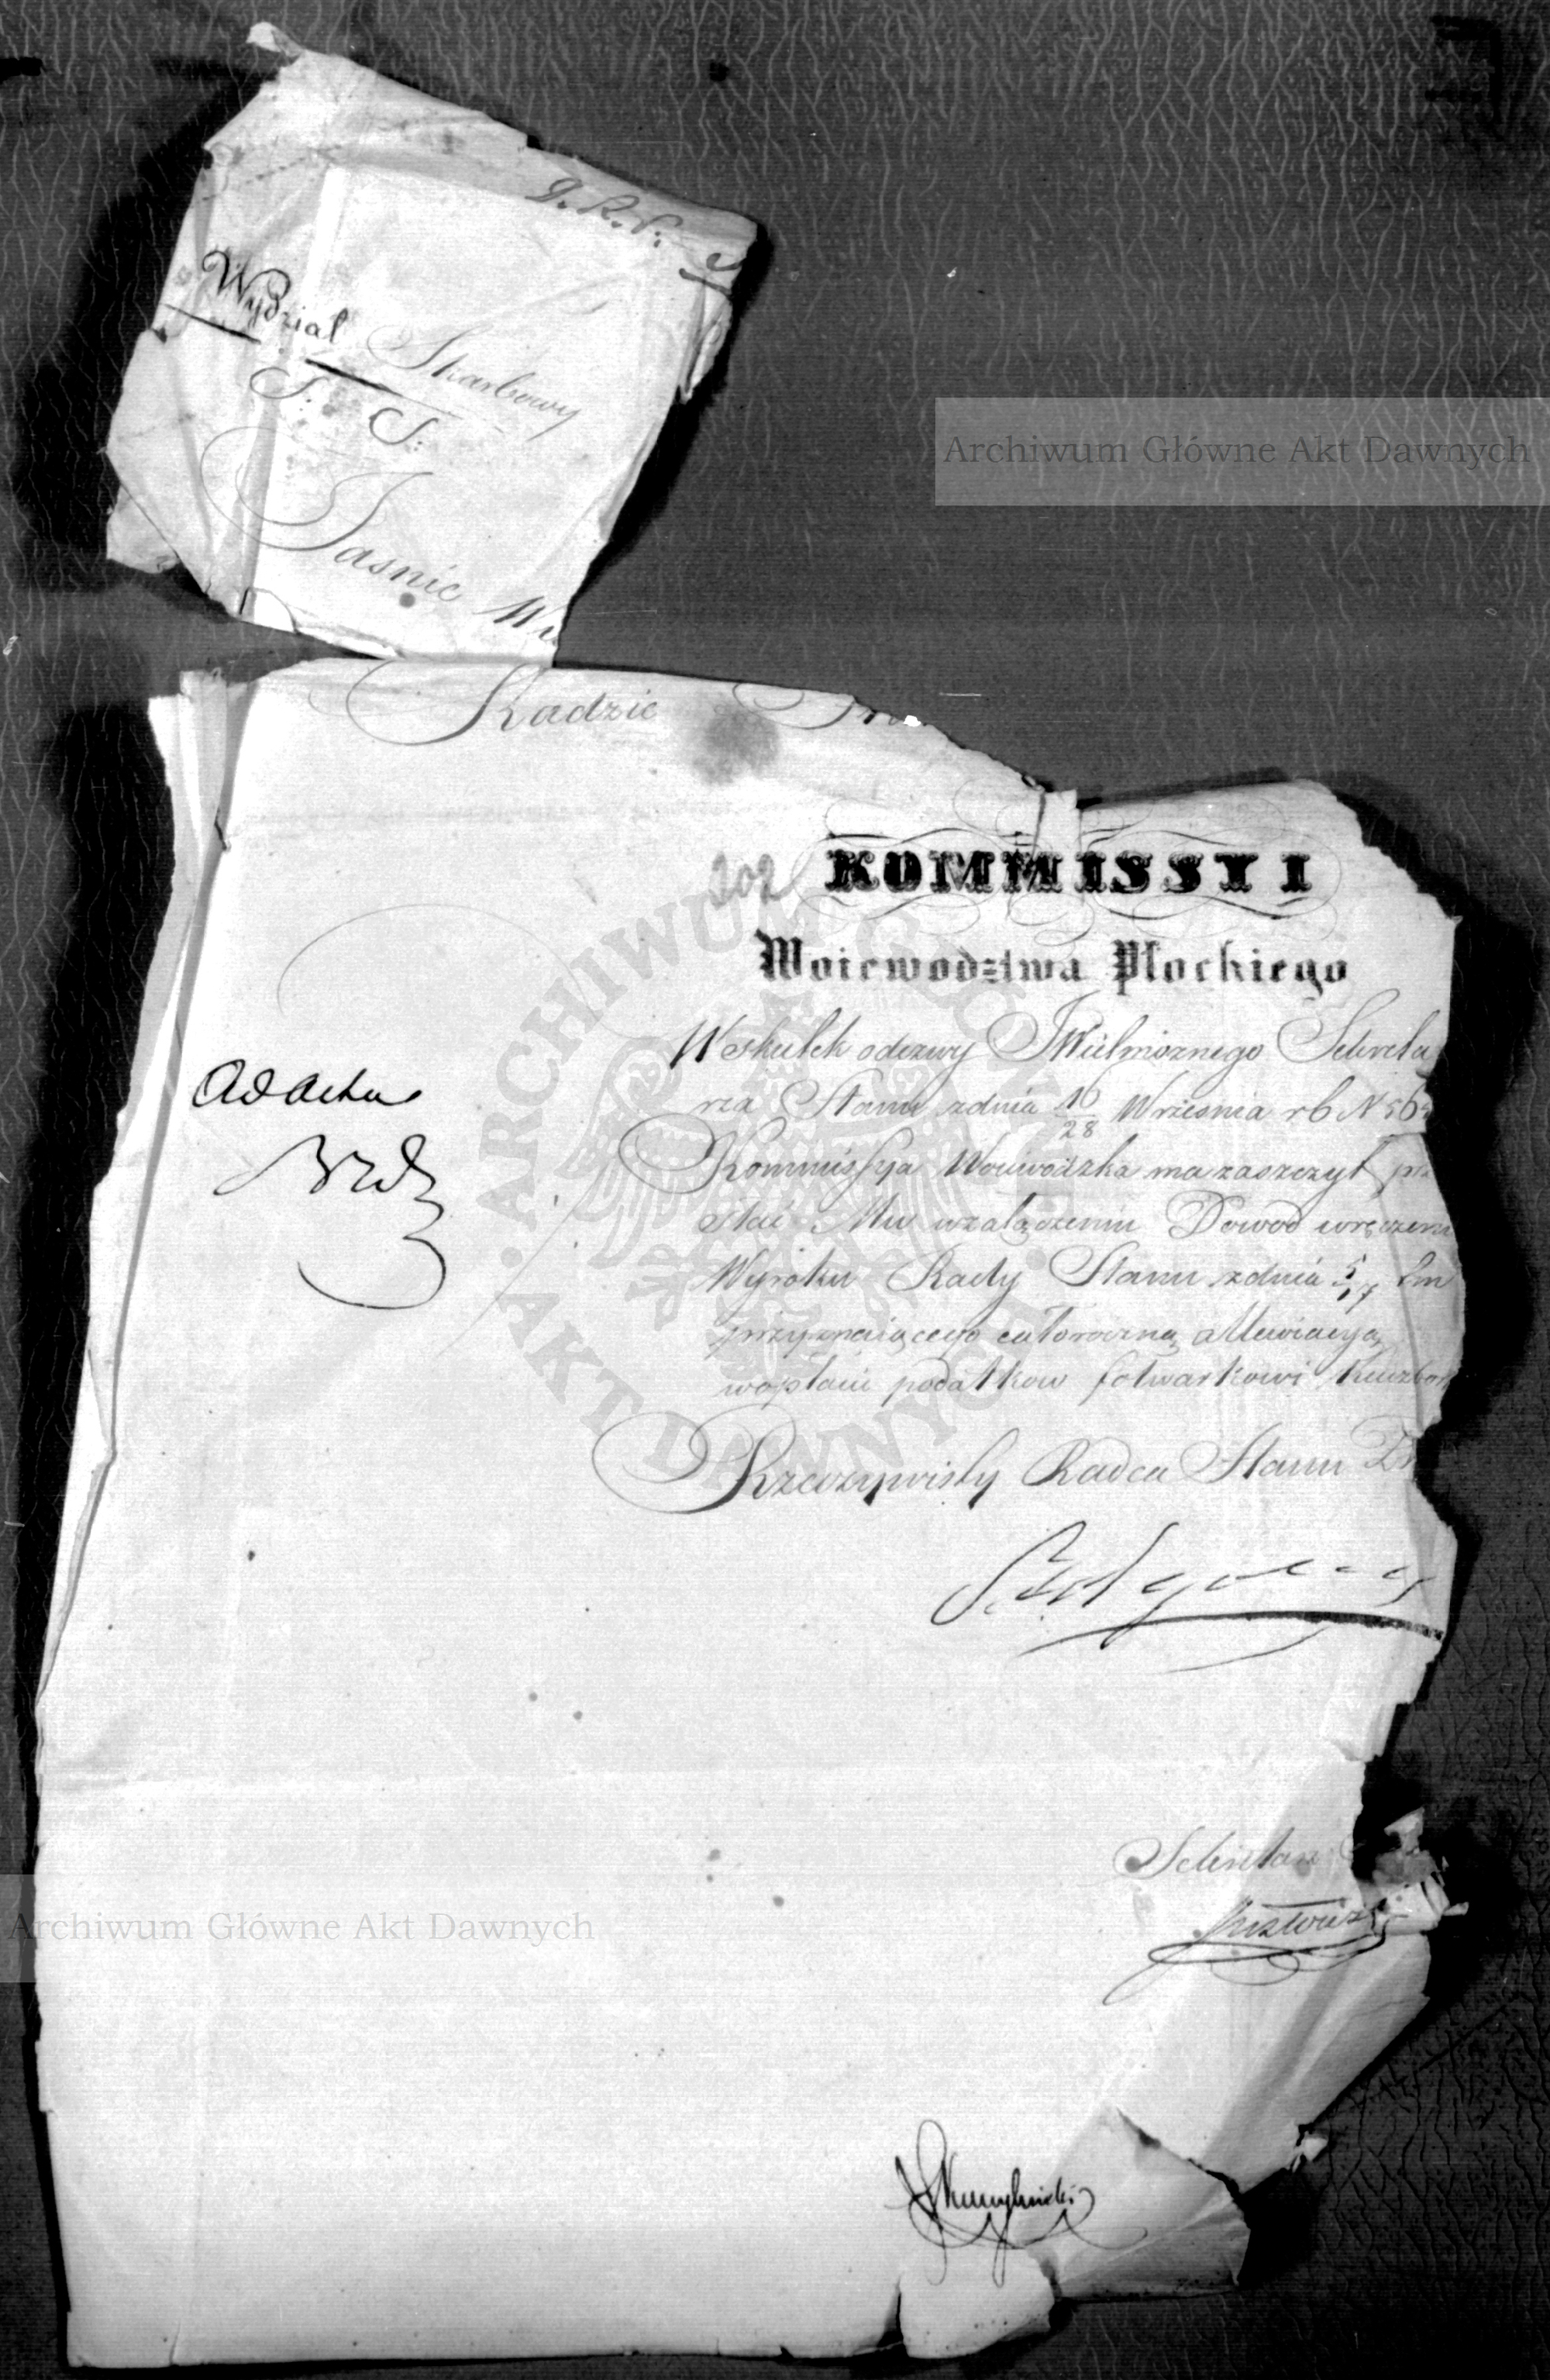 J.K.P.
Wydział Skarbowy
S: S:
Jaśnie
Radzie
202 KOMMISSYI
Woiewodztwa Płockiego
W skutek odezwy JWielmożnego Sekreta
rza Stanu z dnia 16/28 Września r b N
Kommissya Woiewodzka ma zaszczyt
słać Mu w załączeniu Dowod wręczeni
Wyroku Rady Stanu z dnia 5/17
przyznaiącego całoroczną allewiacyą
w opłacie podatkow folwarkowi
Rzeczywisty Radca Stanu
Ad acta
Sekretarz
Archiwum Główne Akt Dawnych
Archiwum Główne Akt Dawnych
ARCHIWUM GŁÓWNE · AKT DAWNYCH ·